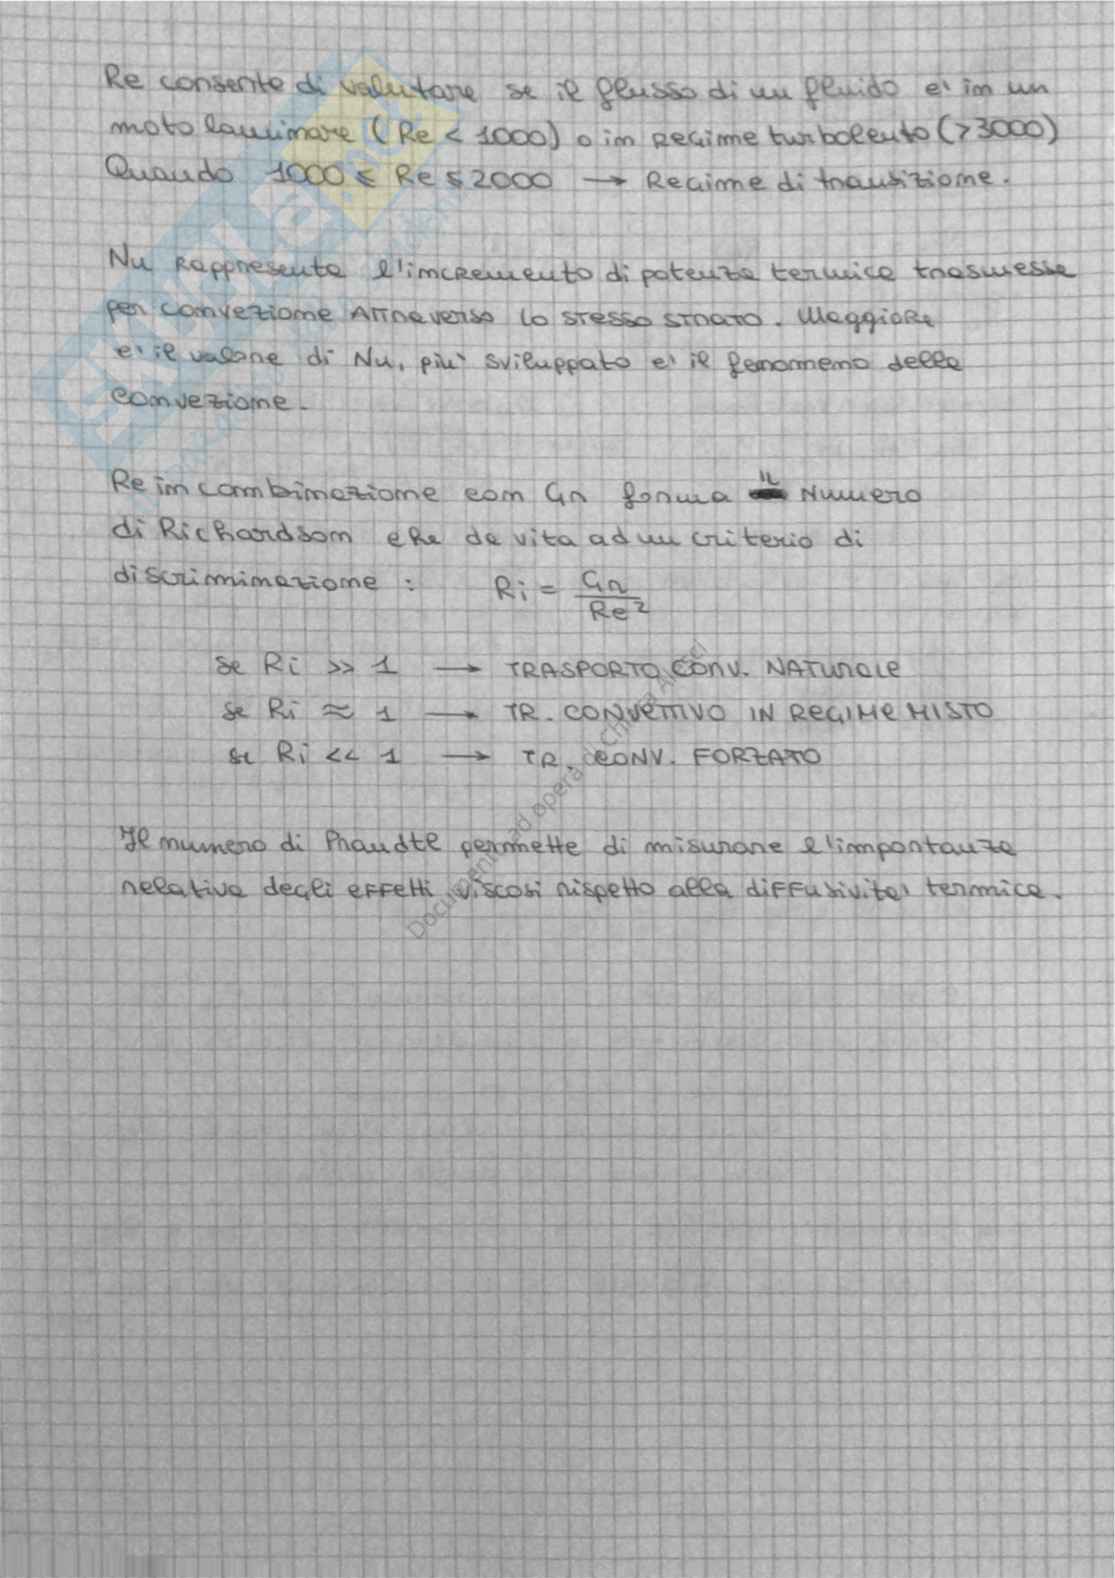 Re consente di valutare se il flusso di un fluido e' in un
moto laminare (Re < 1000) o in regime turbolento (>3000)
Quando 1000 ≤ Re ≤ 2000 → Regime di transizione.
Nu rappresenta l'incremento di potenza termica trasmessa
per convezione attraverso lo stesso strato. Maggiore
e' il valore di Nu, piu' sviluppato e' il fenomeno della
convezione.
Re in combinazione con Gr forma il numero
di Richardson che da vita ad un criterio di
discriminazione : Ri = Gr/Re²
se Ri >> 1 → TRASPORTO CONV. NATURALE
se Ri ≈ 1 → TR. CONVETTIVO IN REGIME MISTO
se Ri << 1 → TR. CONV. FORZATO
Il numero di Prandtl permette di misurare l'importanza
relativa degli effetti viscosi rispetto alla diffusivita' termica.